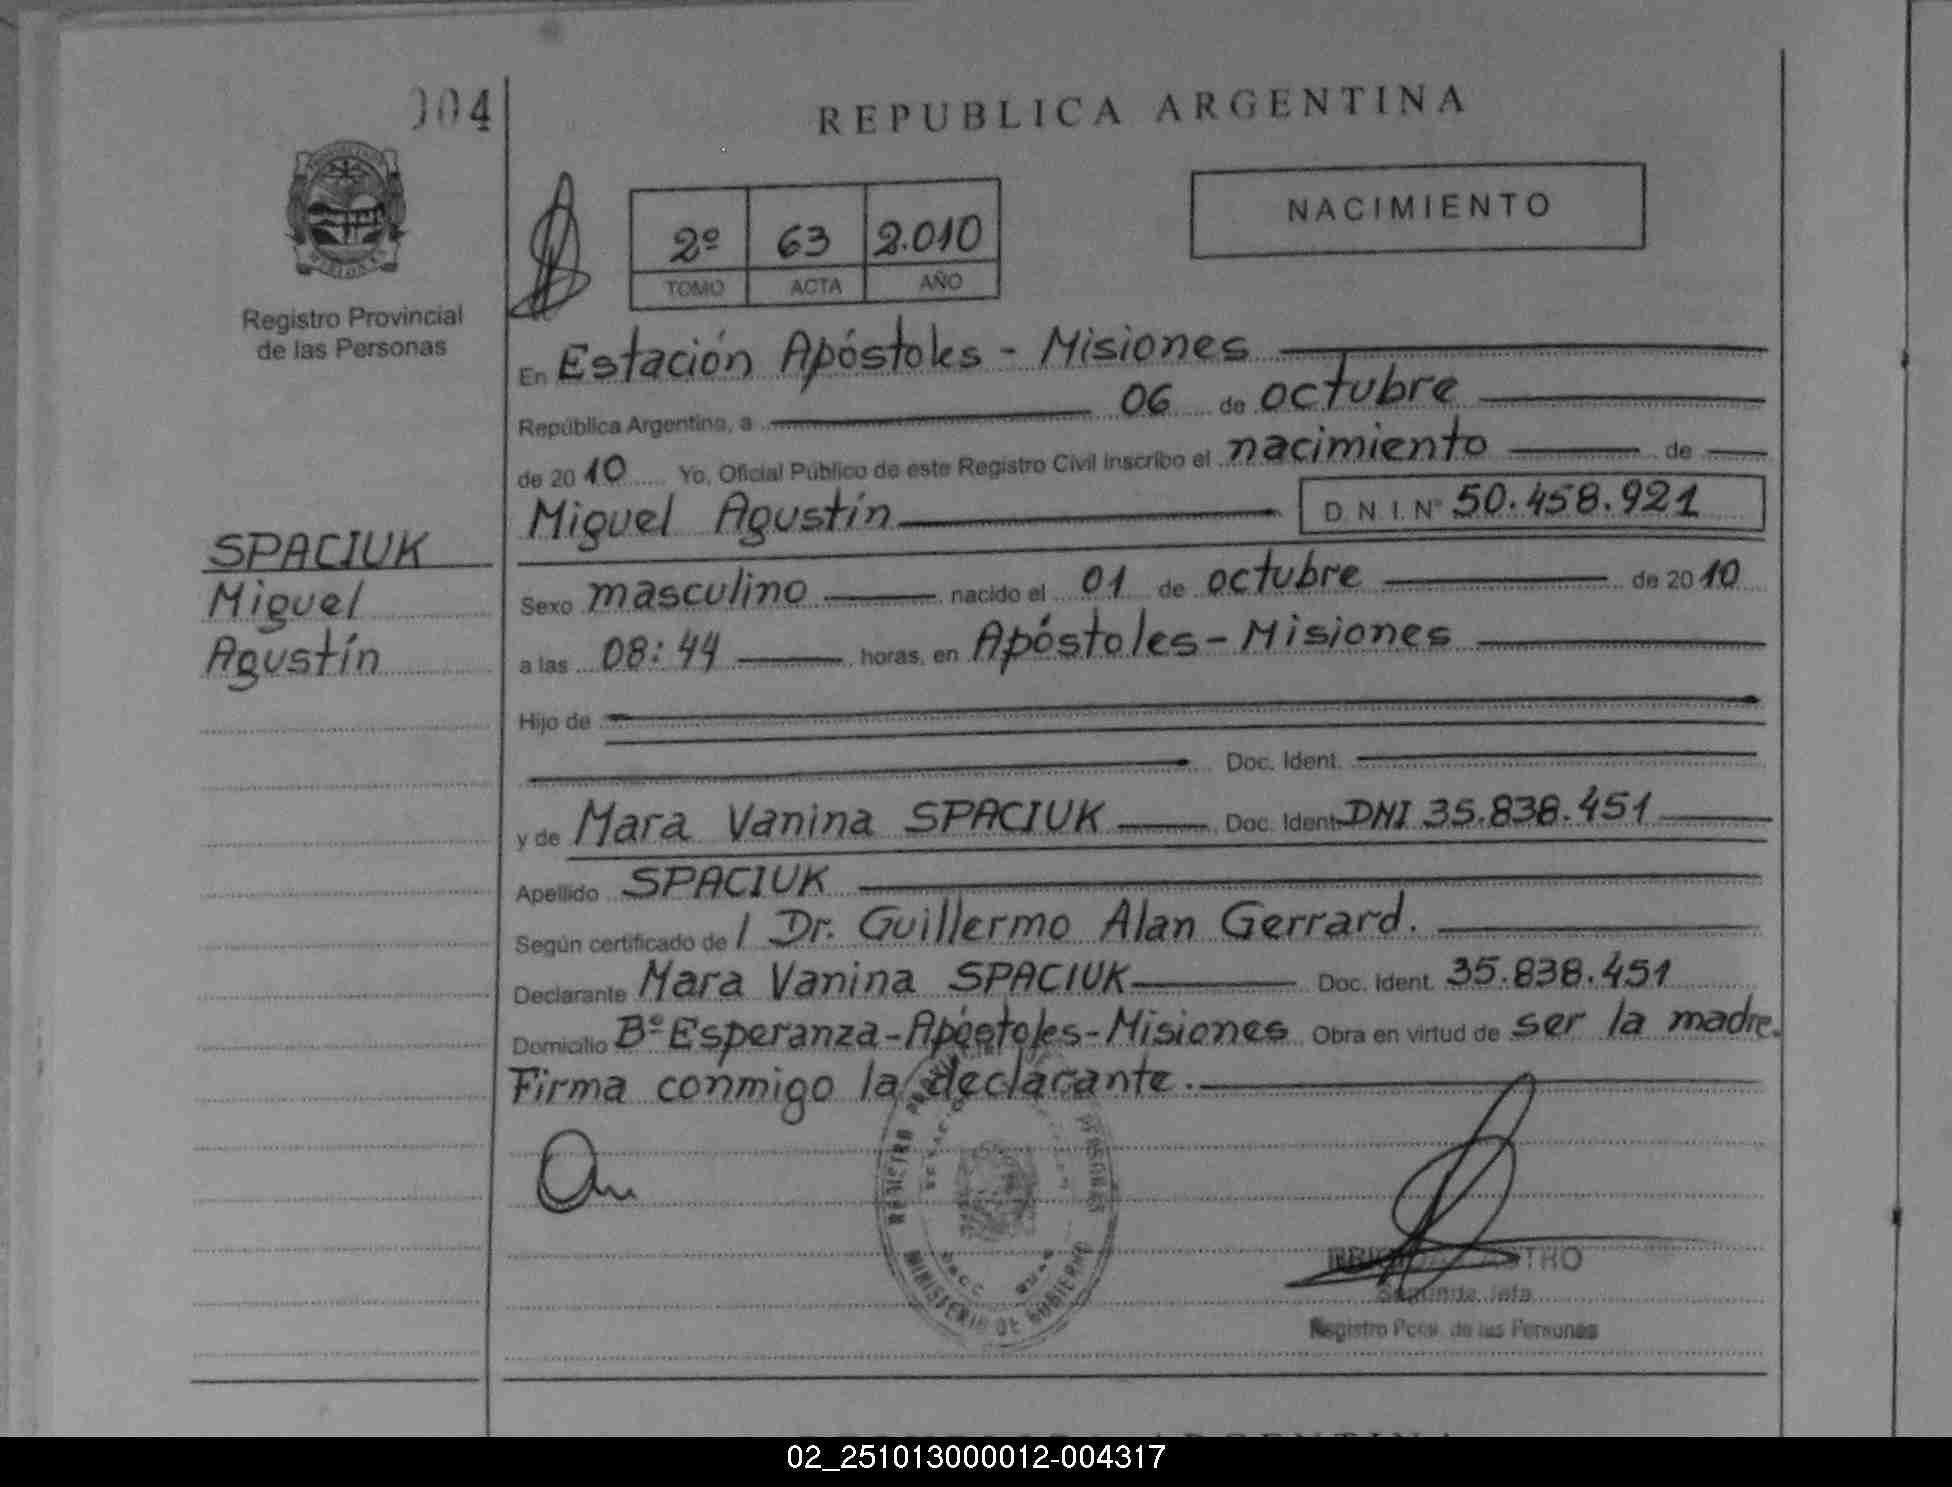 004
REPUBLICA ARGENTINA
NACIMIENTO
2º 63 2.010
TOMO ACTA AÑO
Registro Provincial
de las Personas
En Estación Apóstoles - Misiones
República Argentina, a 06 de octubre
de 2010 Yo, Oficial Público de este Registro Civil inscribo el nacimiento de
Miguel Agustín D.N.I. Nº 50.458.921
SPACIUK
Miguel
Agustín
Sexo masculino nacido el 01 de octubre de 2010
a las 08:44 horas, en Apóstoles - Misiones
Hijo de
Doc. Ident.
y de Mara Vanina SPACIUK Doc. Ident. DNI 35.838.451
Apellido SPACIUK
Según certificado de / Dr. Guillermo Alan Gerrard.
Declarante Mara Vanina SPACIUK Doc. Ident. 35.838.451
Domicilio Bº Esperanza - Apóstoles - Misiones Obra en virtud de ser la madre.
Firma conmigo la declarante.
MINISTERIO DE GOBIERNO
Registro Pcial. de las Personas
02_251013000012-004317